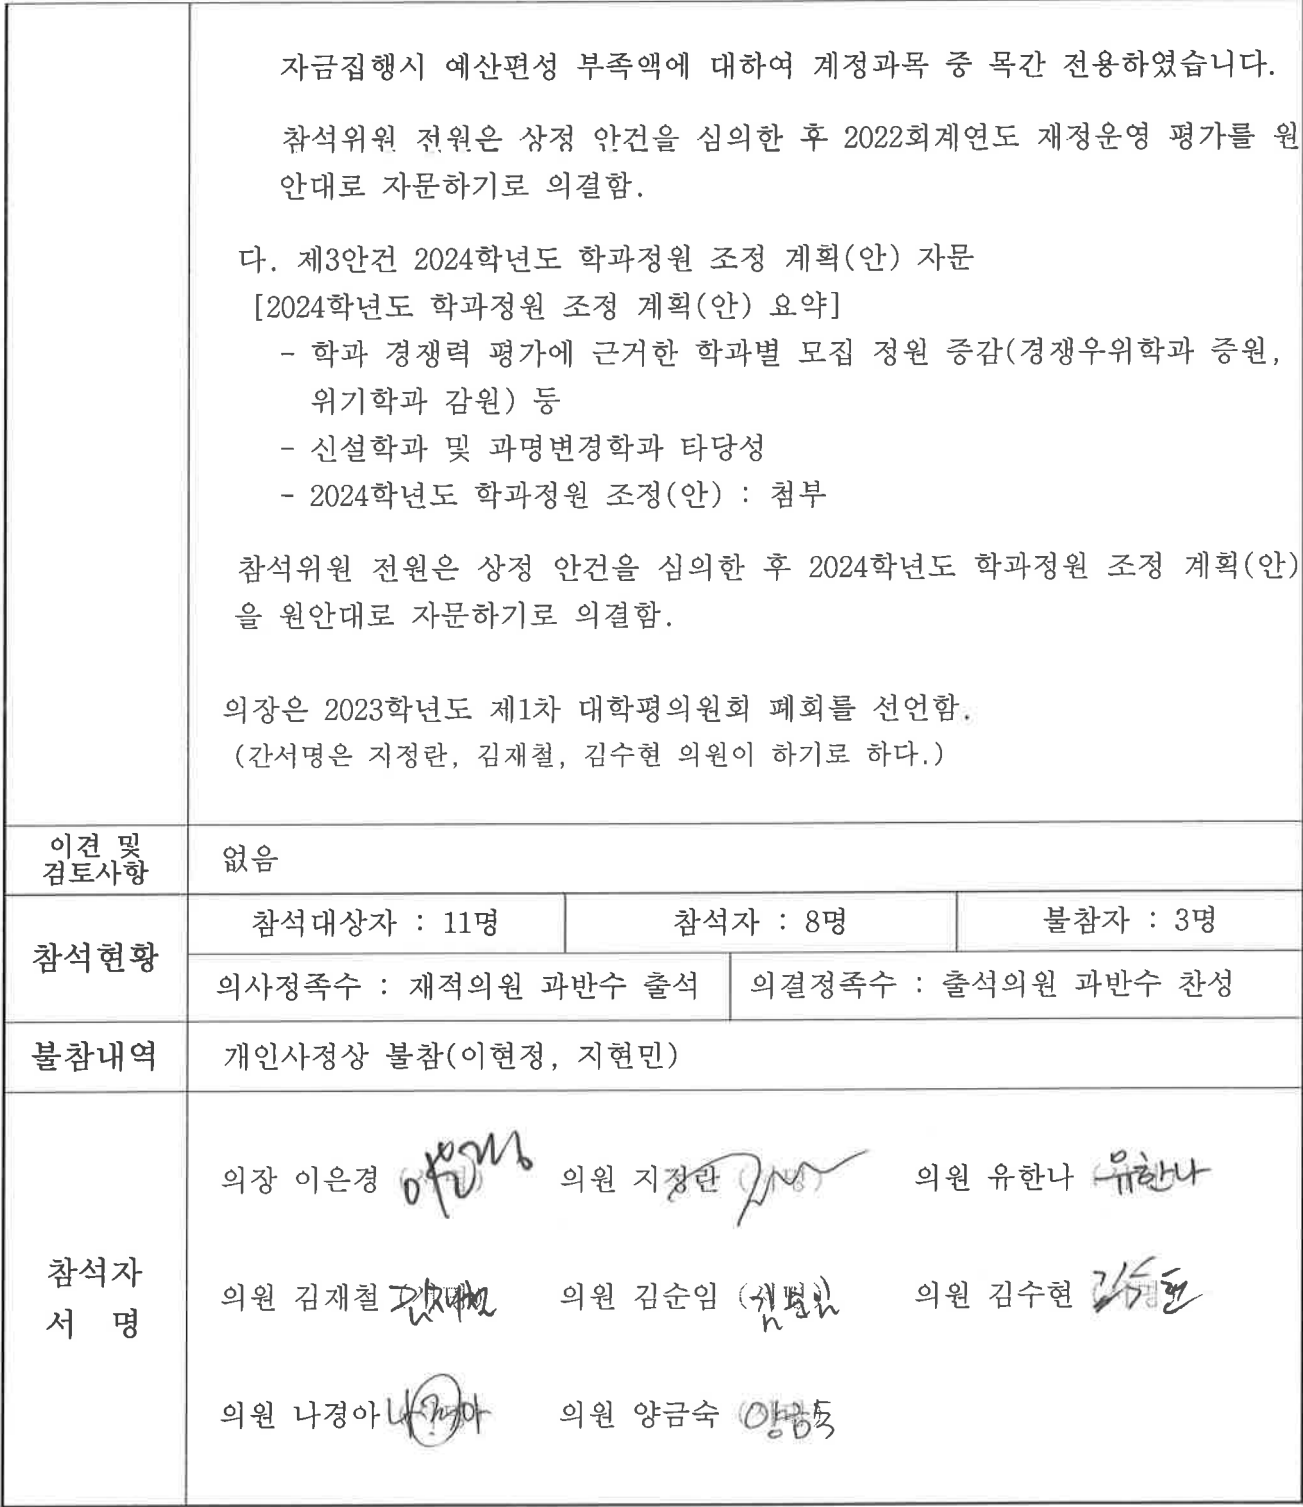 자금집행시 예산편성 부족액에 대하여 계정과목 중 목간 전용하였습니다.
참석위원 전원은 상정 안건을 심의한 후 2022회계연도 재정운영 평가를 원
안대로 자문하기로 의결함.
다. 제3안건 2024학년도 학과정원 조정 계획(안) 자문
[2024학년도 학과정원 조정 계획(안) 요약]
- 학과 경쟁력 평가에 근거한 학과별 모집 정원 증감(경쟁우위학과 증원,
위기학과 감원) 등
- 신설학과 및 과명변경학과 타당성
- 2024학년도 학과정원 조정(안) : 첨부
참석위원 전원은 상정 안건을 심의한 후 2024학년도 학과정원 조정 계획(안)
을 원안대로 자문하기로 의결함.
의장은 2023학년도 제1차 대학평의원회 폐회를 선언함.
(간서명은 지정란, 김재철, 김수현 의원이 하기로 하다.)
이견 및
검토사항
없음
참석현황
참석대상자 : 11명 참석자 : 8명 불참자 : 3명
의사정족수 : 재적의원 과반수 출석 의결정족수 : 출석의원 과반수 찬성
불참내역
개인사정상 불참(이현정, 지현민)
참석자
서 명
의장 이은경 의원 지정란 의원 유한나 유한나
의원 김재철 김재철 의원 김순임 의원 김수현 김수현
의원 나경아 나경아 의원 양금숙 양금숙